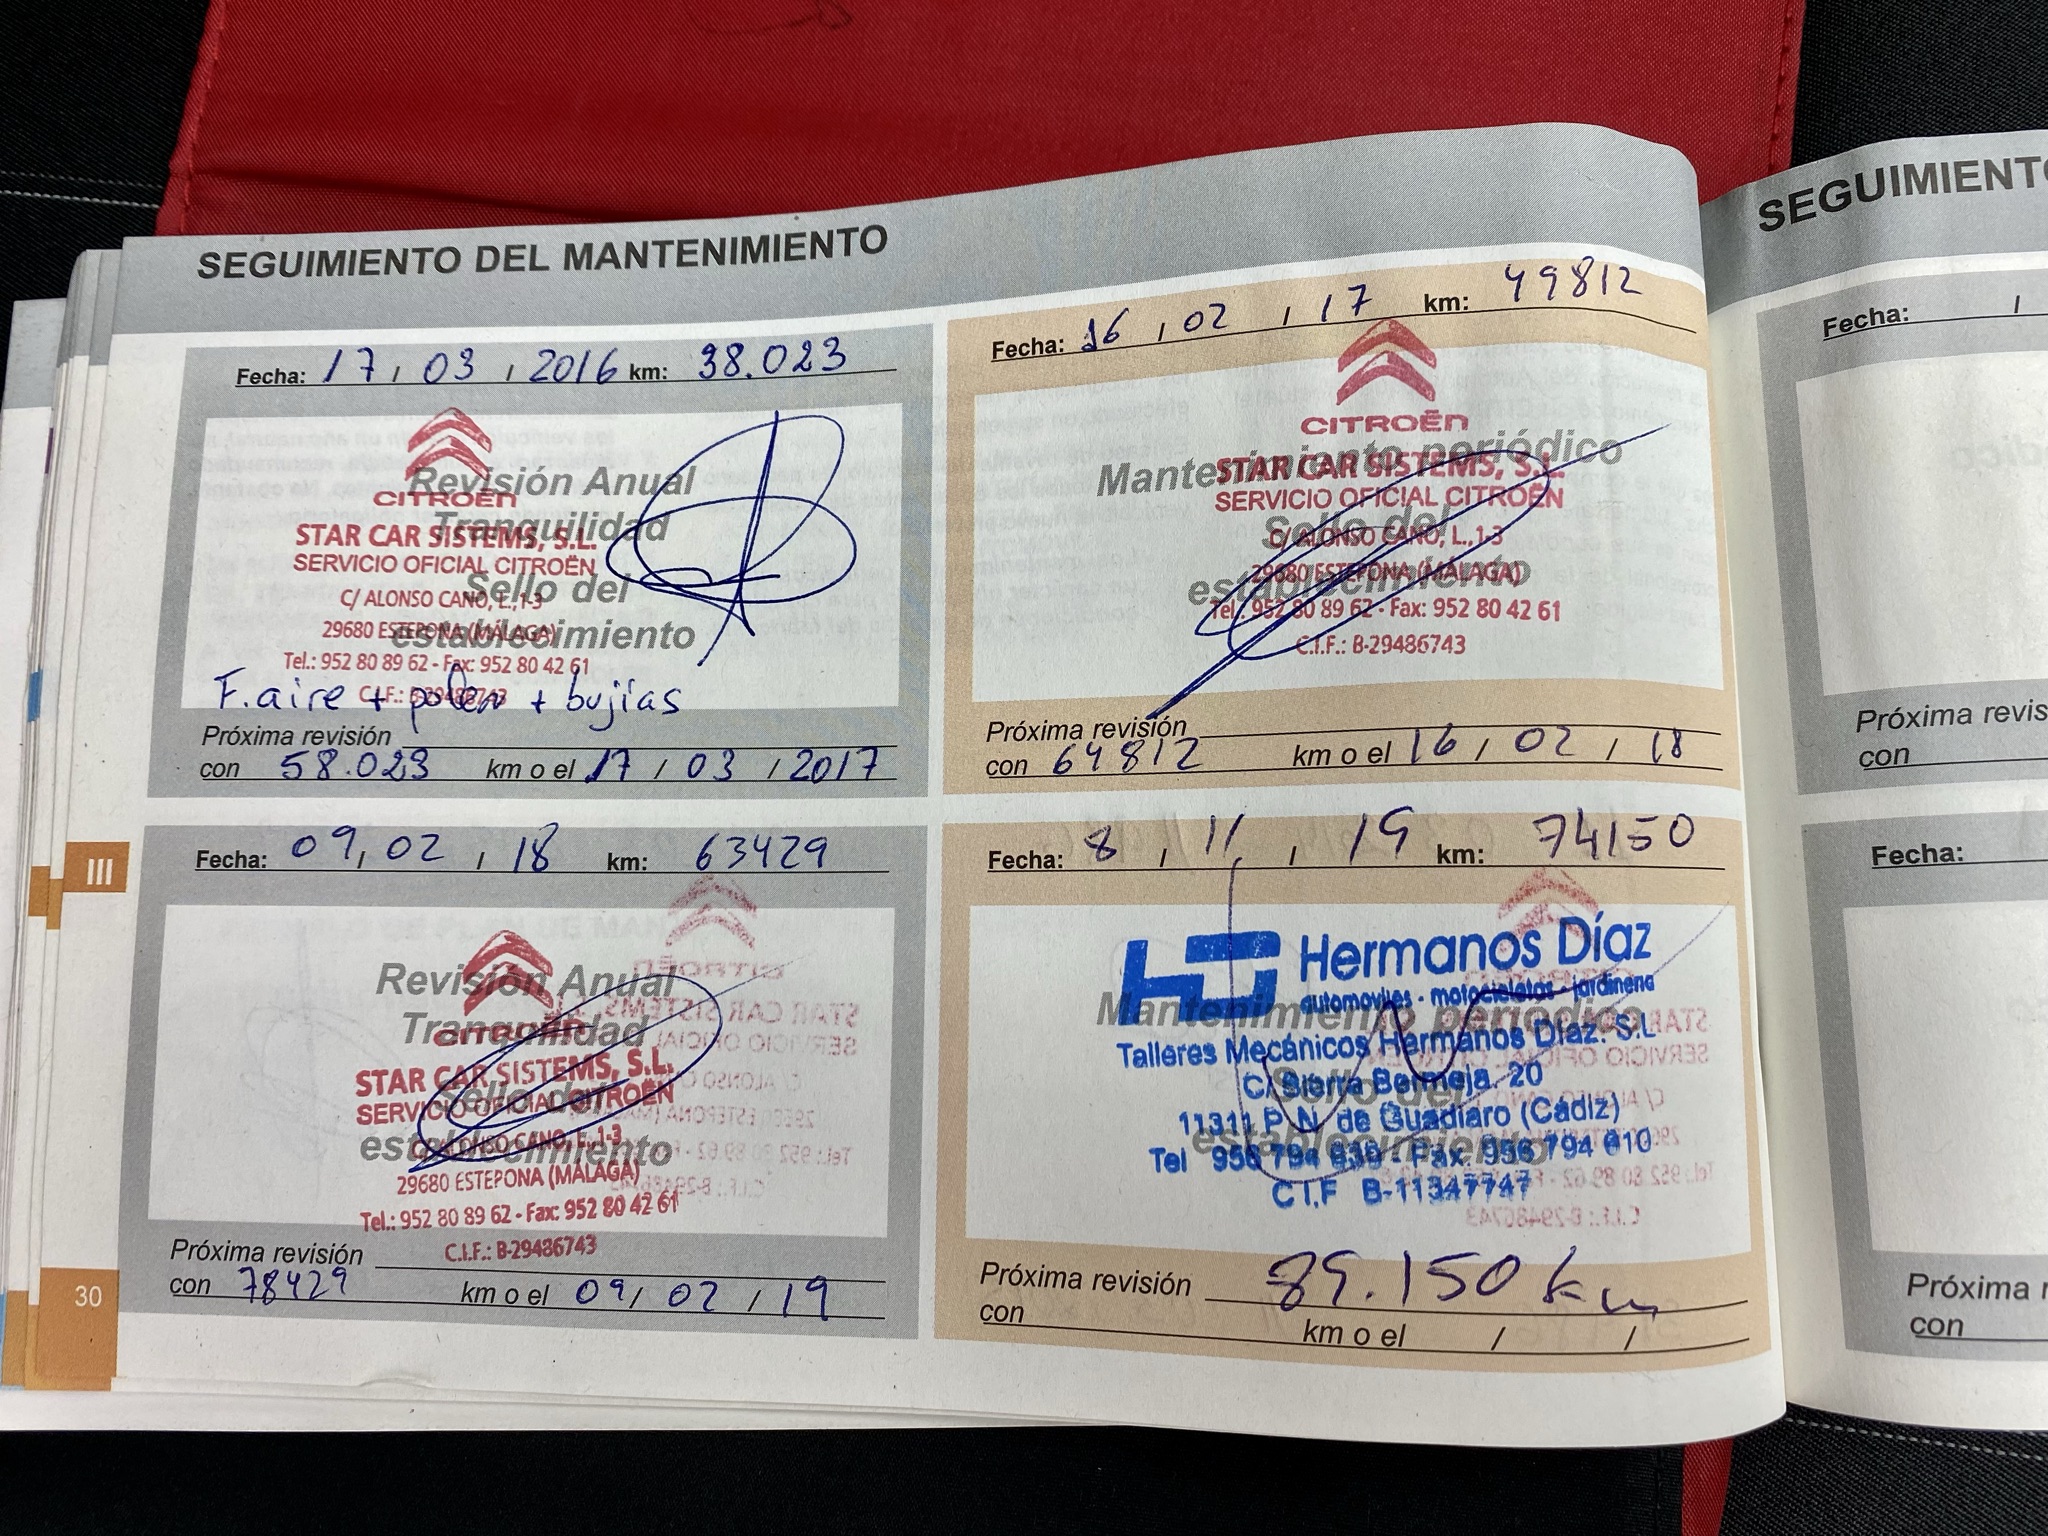 SEGUIMIENTO DEL MANTENIMIENTO
Fecha: 17 / 03 / 2016 km: 38.023
Revisión Anual
Tranquilidad
Sello del
establecimiento
CITROËN
STAR CAR SISTEMS, S.L.
SERVICIO OFICIAL CITROËN
C/ ALONSO CANO, L., 1-3
29680 ESTEPONA (MÁLAGA)
Tel.: 952 80 89 62 - Fax: 952 80 42 61
C.I.F.: B-29486743
F. aire + polen + bujias
Próxima revisión
con 58.023 km o el 17 / 03 / 2017
Fecha: 16 / 02 / 17 km: 49812
CITROËN
Mantenimiento periódico
Sello del
establecimiento
STAR CAR SISTEMS, S.L.
SERVICIO OFICIAL CITROËN
C/ ALONSO CANO, L., 1-3
29680 ESTEPONA (MÁLAGA)
Tel.: 952 80 89 62 - Fax: 952 80 42 61
C.I.F.: B-29486743
Próxima revisión
con 64812 km o el 16 / 02 / 18
Fecha: 09 / 02 / 18 km: 63429
Revisión Anual
Tranquilidad
Sello del
establecimiento
CITROËN
STAR CAR SISTEMS, S.L.
SERVICIO OFICIAL CITROËN
C/ ALONSO CANO, L., 1-3
29680 ESTEPONA (MÁLAGA)
Tel.: 952 80 89 62 - Fax: 952 80 42 61
C.I.F.: B-29486743
Próxima revisión
con 78429 km o el 09 / 02 / 19
Fecha: 8 / 11 / 19 km: 74150
Mantenimiento periódico
Sello del
establecimiento
HD Hermanos Díaz
automoviles - motocicletas - jardineria
Talleres Mecánicos Hermanos Díaz. S.L
C/ Sierra Bermeja. 20
11311 P. N. de Guadiaro (Cádiz)
Tel 956 794 839 - Fax. 956 794 610
C.I.F B-11347747
Próxima revisión 89.150 km
con km o el / /
III
30
SEGUIMIENTO
Fecha: /
Próxima revis
con
Fecha:
Próxima r
con